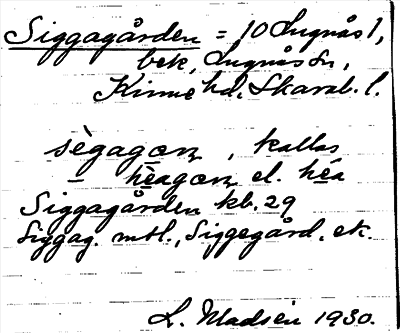 Siggagården = 10 Lugnås 1,
bek, Lugnås sn,
Kinne hd, Skarab. l.
sègagɷn, kallas
hèagɷn el. hèa
Siggagården kb. 29
Siggag. mtl., Siggegård. ek.
L. Madsén 1930.